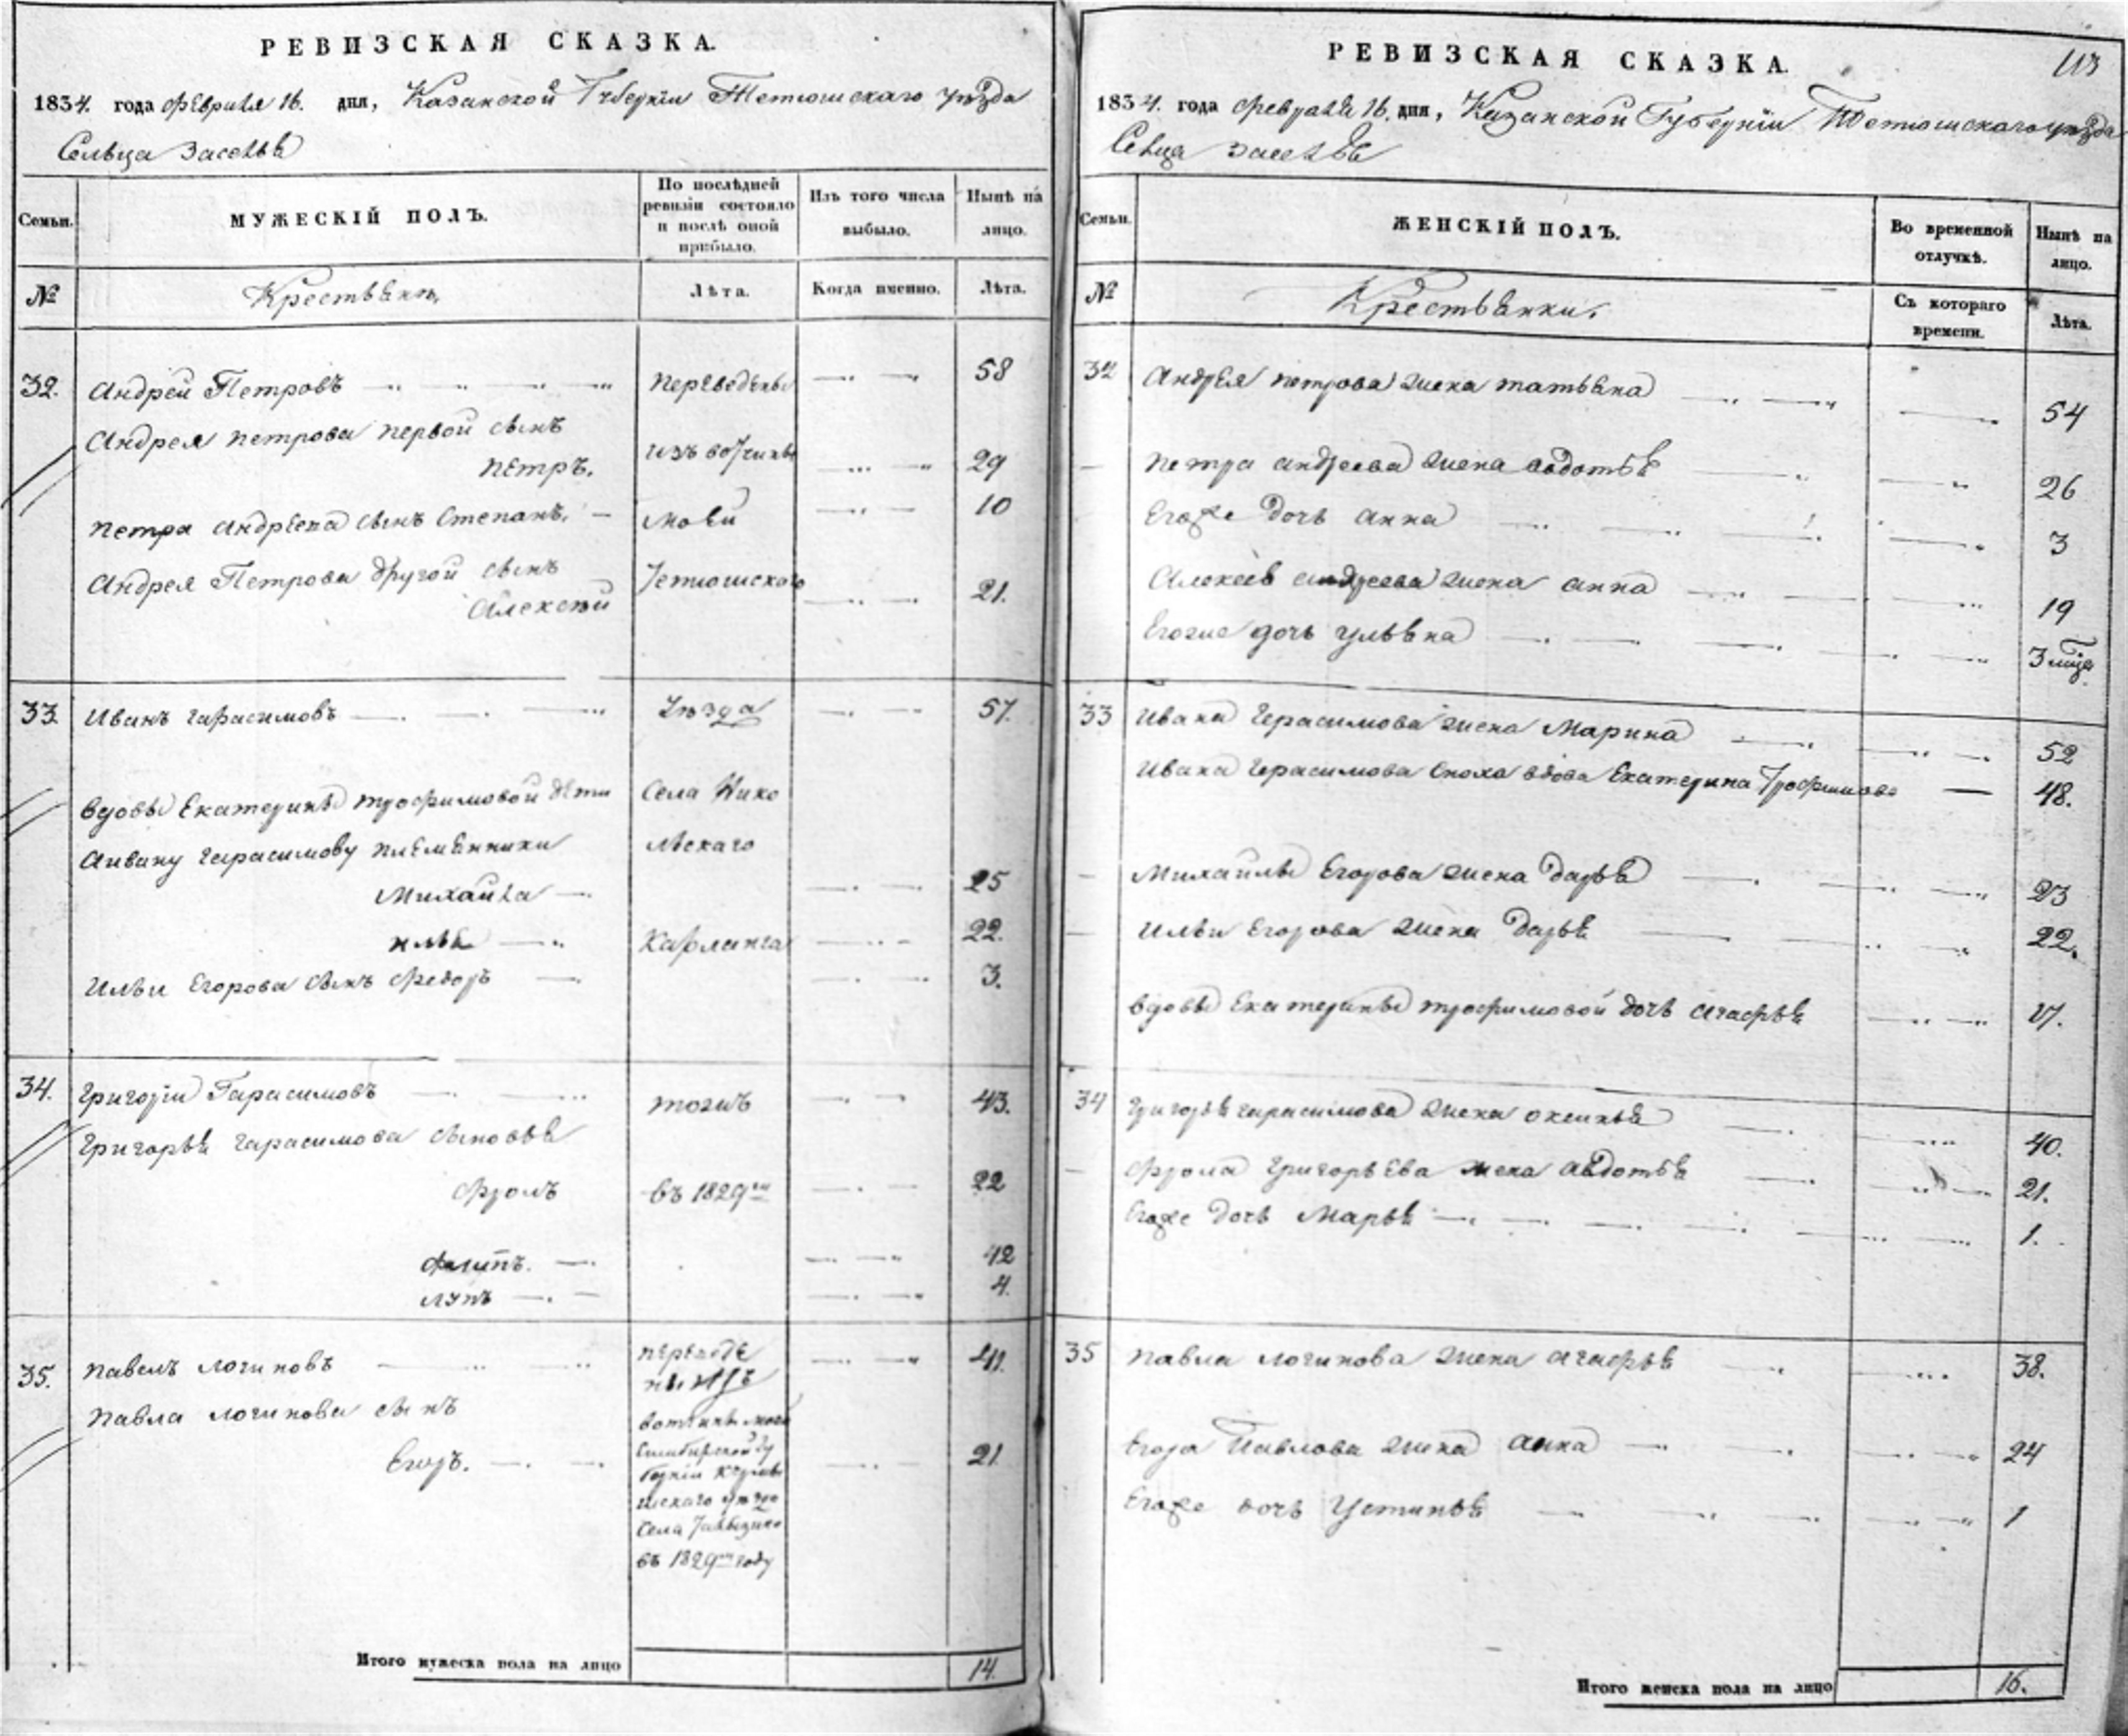 РЕВИЗСКАЯ СКАЗКА.
1834. года февраля 16. дня, Казанской Губернiи Тетюшскаго уѣзда
Сельца Заселья
Семьи.
МУЖЕСКIЙ ПОЛЪ.
По послѣдней ревизiи состояло и послѣ оной прибыло.
Изъ того числа выбыло.
Нынѣ на лицо.
№
Крестьяне.
Лѣта.
Когда именно.
Лѣта.
32. Андрей Петровъ переведены 58
Андрея петрова первой сынъ
петръ. изъ вотчины 29
петра андреева сынъ Степанъ. моей 10
Андрея Петрова другой сынъ Тетюшскаго
Алексѣй 21.
33. Иванъ Гарасимовъ Уѣзда 57.
вдовы Екатерины трофимовой дѣти Села Нико
Аивану гарасимову племянники льскаго
Михайла 25
илья Карланга 22.
Ильи Егорова сынъ федоръ 3.
34. Григорiй Гарасимовъ тогжъ 43.
Григорья гарасимова сыновья
фролъ въ 1829мъ 22
филипъ. 12
лупъ 4.
35. павелъ логиновъ переведе 41.
ны изъ
павла логинова сынъ вотчины моей
Егоръ. Симбирской гу 21
бернiи
шскаго уѣзда
села
въ 1829мъ году
Итого мужеска пола на лицо 14.
РЕВИЗСКАЯ СКАЗКА.
113
1834. года февраля 16. дня, Казанской Губернiи Тетюшскаго уѣзда
Сельца Заселья
Семьи.
ЖЕНСКIЙ ПОЛЪ.
Во временной отлучкѣ.
Нынѣ на лицо.
№
Крестьянки.
Съ котораго времени.
Лѣта.
32 Андрея петрова жена татьяна 54
петра андреева жена авдотья 26
Егоже дочь анна 3
Алексея андреева жена анна 19
Егоже дочь ульяна 3 мца
33 Ивана Герасимова жена Марина 52
Ивана Герасимова сноха вдова Екатерина Трофимова 48.
Михайлы Егорова жена дарья 23
Ильи Егорова жена дарья 22.
вдовы Екатерины трофимовой дочь агафья 17.
34 Григорья гарасимова жена оксинья 40.
фрола Григорьева жена авдотья 21.
Егоже дочь Марья 1.
35 павла логинова жена агафья 38.
Егора Павлова жена анна 24
Егоже дочь Устинья 1
Итого женска пола на лицо 16.